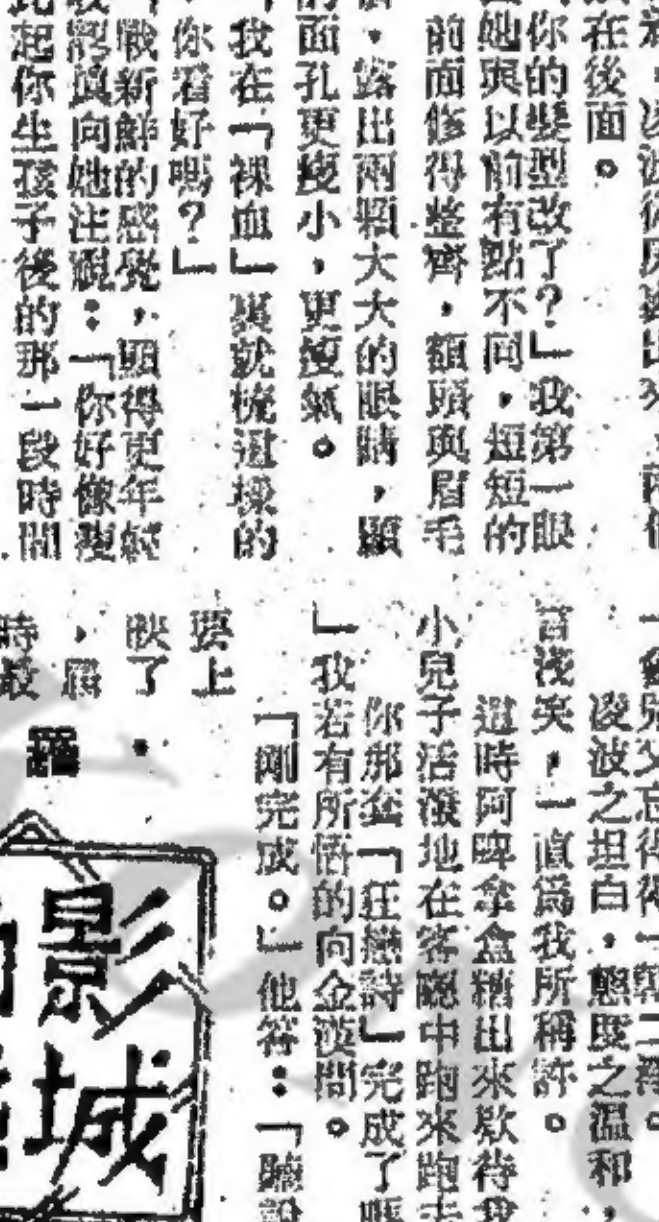 凌波從房裏出來,兩個
在後面。
你的髮型改了?」我第一眼
她與以前有點不同,短短的
前面修得整齊,額頭與眉毛
,露出兩顆大大的眼睛,顯
的面孔更瘦小,更氣。
我在「裸血」裏就梳這樣的
你看好嗎?」
新鮮的感覺,顯得更年輕
認真向她注視:「你好像瘦
比起你生孩子後的那一段時間
一會兒又忘得得一乾二淨。
凌波之坦白,態度之溫和,
淺矣,一直爲我所稱許。
這時阿婢拿盒糖出來欵待我
小兒子活潑地在客廳中跑來跑去
你那套「狂戀詩」完成了嗎
」我若有所悟的向金漢問。
「剛完成。」他答:「聽說
要上
映了。
,屆
時最
影城